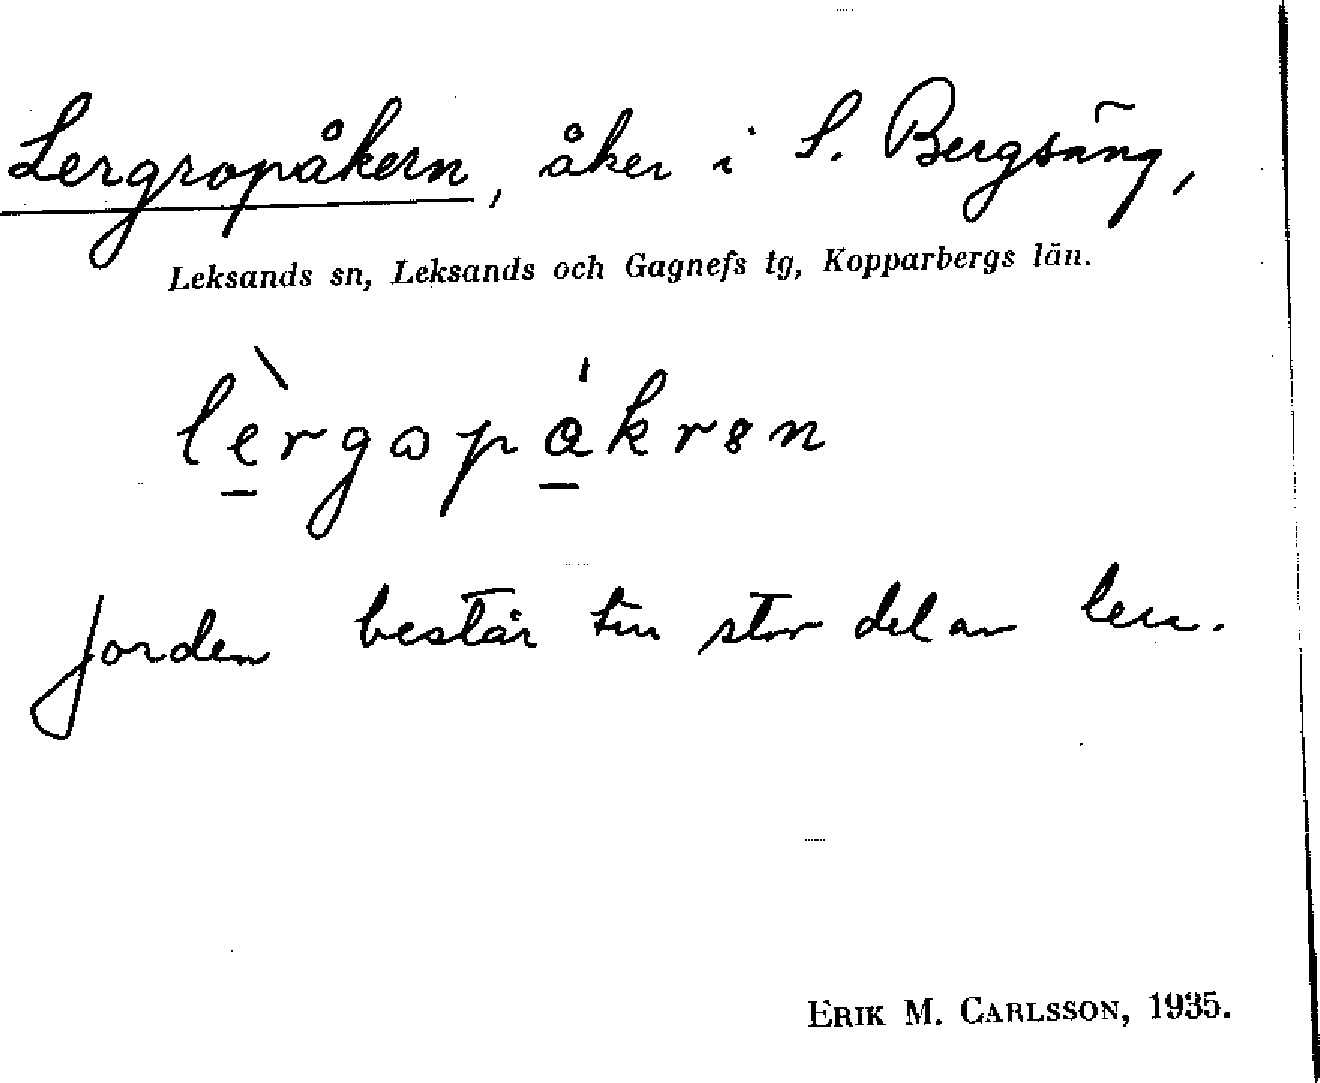 Lergropåkern, åker i S. Bergsäng,
Leksands sn, Leksands och Gagnefs tg, Kopparbergs län.
lèrgωpåkrən
Jorden består till stor del av lera.
ERIK M. CARLSSON, 1935.